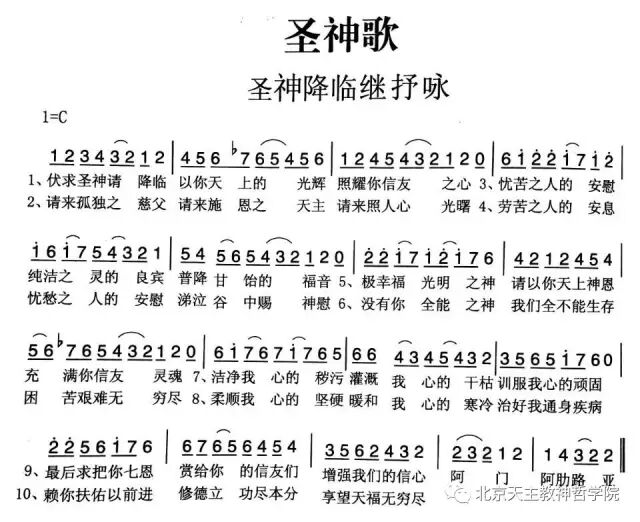 圣神歌
圣神降临继抒咏
1=C
12343212 456 ♭765456 123432120 61221712
1、伏求圣神请 降临 以你天 上的 光辉 照耀你信友 之心 3、忧苦之人的 安慰
2、请来孤独之 慈父 请来施 恩之 天主 请来照人心 光曙 4、劳苦之人的 安息
1617543212 54 5654 32120 2217121 2176 4212454
纯洁之 灵的 良宾 普降 甘 饴的 福音 5、极幸福 光明 之神 请以你天上神恩
忧愁之 人的 安慰 涕泣 谷 中赐 神慰 6、没有你 全能 之神 我们全不能生存
56♭7654343212 61767 1765 66 43454432 35651760
充 满你信友 灵魂 7、洁净我 心的 秽污 灌溉 我 心的 干枯 训服我心的顽固
困 苦艰难无 穷尽 8、柔顺我 心的 坚硬 暖和 我 心的 寒冷 治好我通身疾病
2256176 67656454 3562432 23212 14322
9、最后求把你七恩 赏给你 的信友们 增强我们的信心 阿 门 阿肋路 亚
10、赖你扶佑以前进 修德立 功尽本分 享望天福无穷尽
北京天主教神哲学院